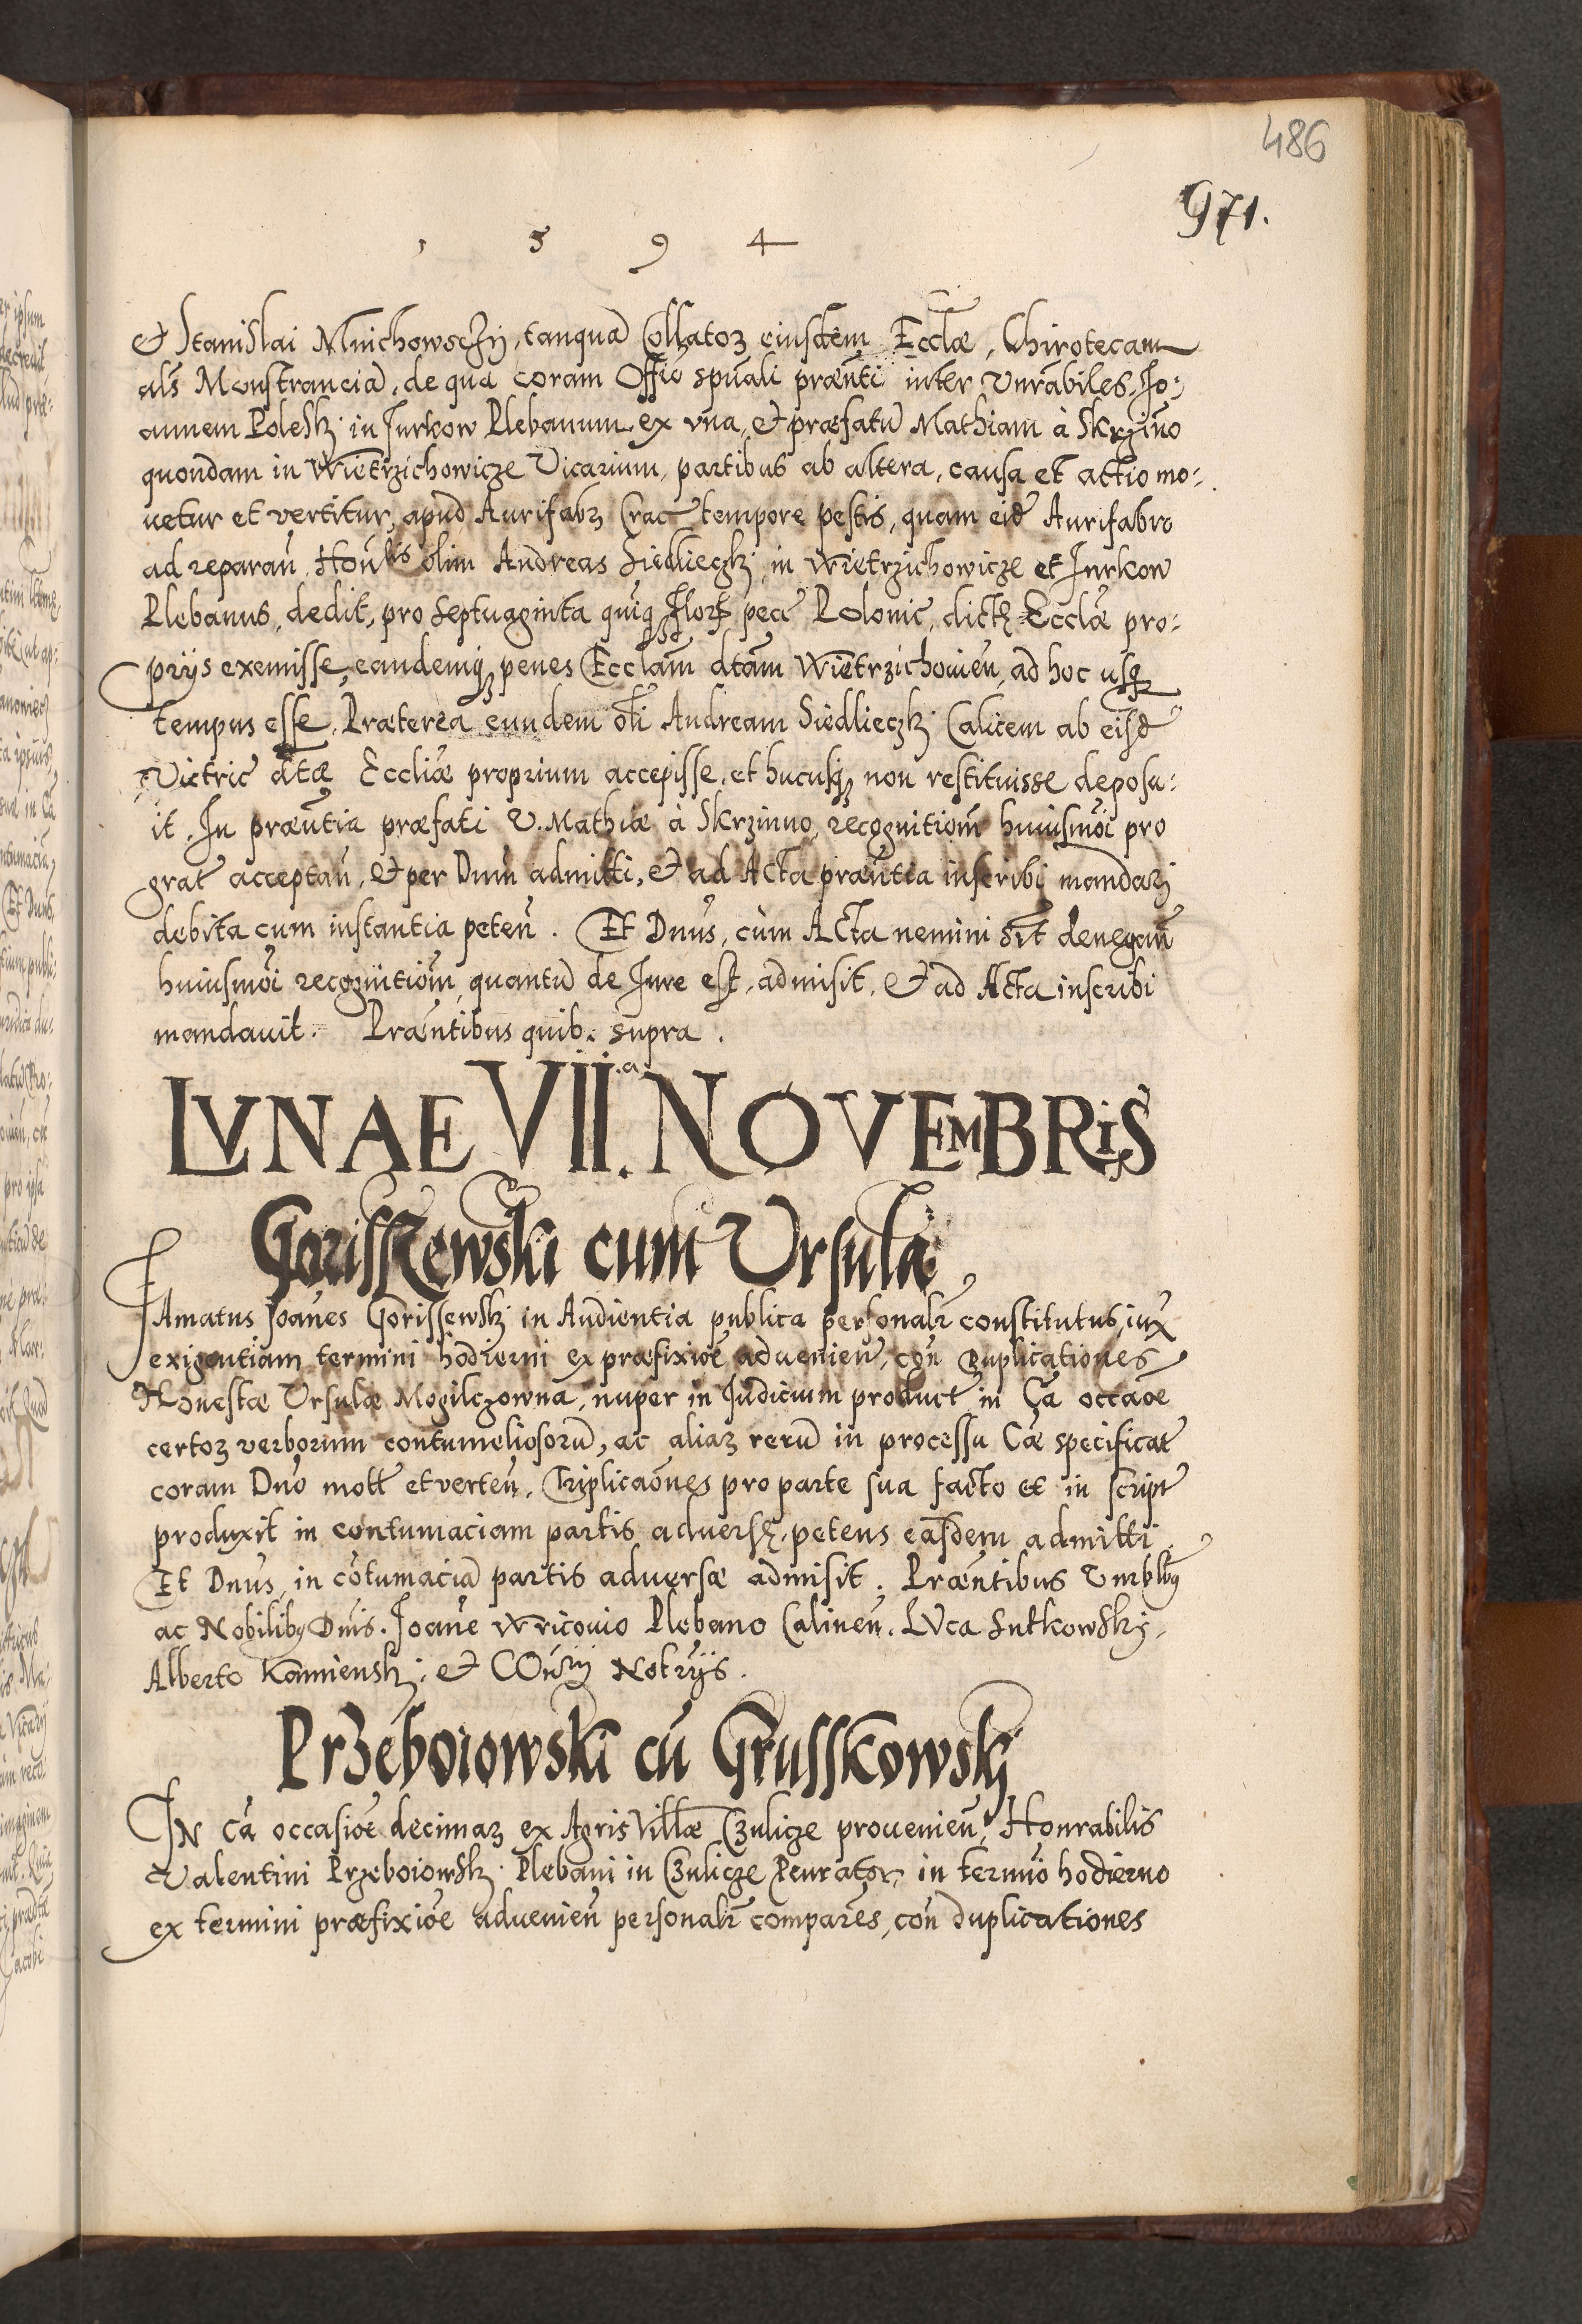 486
971.
1 5 9 4
et Stanislai Mnichowscÿ, tanquā Collatoꝝ eiusdem Ecclæ, Chirotecam
als Monstranciā, de qua coram Offiō spūali prænti inter Vnrabiles Jo:
annem Polesk: in Jurkow Plebanum ex vna, et præfatū Mathiam à Skrzinno
quondam in Wietrzichowicze Vicarium, partibus ab altera, causa et actio mo:
uetur et vertitur, apud Aurifabꝝ Crac tempore pestis, quam eid Aurifabro
ad reparan̄ Hon̄lis olim Andreas Siedlieczk: in Wietrzichowicze et Jurkow
Plebanus, dedit, pro septuaginta quiqꝫ flor pec Polonic, dictę Ecclæ pro:
prijs exemisse, eandemqꝫ penes Ecclam dtam Wietrzichouien̄, ad hoc usqꝫ
tempus esse. Præterea eundem oli Andream Siedlieczk: Calicem ab eisd
Victric dtæ Eccliæ proprium accepisse, et hucusqꝫ non restituisse deposu:
it. In præntia præfati V. Mathiæ à Skrzinno, recognitiom̄ huiusmōi pro
grat acceptan̄, et per Dnū admitti, et ad Acta præntia inscribi mandari
debita cum instantia peten̄. Et Dnus, cùm Acta nemini sīt denegan̄
huiusmōi recognitiom̄, quantū de Jure est, admisit, et ad Acta inscribi
mandauit. Præntibus quib: supra.
LVNAE VII.a NOVEMBRIS
Gorisszewski cum Vrsula
FAmatus Joānes Gorissewsk: in Audientia publica personalr constitutus, iux
exigentiam termini hodierni ex præfixiōe aduenien̄, con̄ Duplicationes
Honestæ Vrsulæ Mogilczowna, nuper in Judicium product in Cā occaōe
certoꝝ verborum contumeliosorū, ac aliaꝝ rerū in processu Cæ specificat
coram Dnō mott et verten̄, Triplicaōnes pro parte sua facto et in script
produxit in contumaciam partis aduersę, petens easdem admitti.
Et Dnus, in cōtumaciā partis aduersæ admisit. Præntibus Vnrblby
ac Nobiliby Dnis. Joāne Wricouio Plebano Calinen̄. LVca Sułkowskj,
Alberto Kamiensk: et COnrij Notrijs.
Przeboiowski cū Grusskowsk:
IN Cā occasiōe decimaꝝ ex Agris Villæ Czulicze prouenien̄, Honrabilis
Valentini Przeboiowsk: Plebani in Czulicze Pcurator, in termio hodierno
ex termini præfixiōe aduenien̄ personalr comparēs, con̄ duplicationes